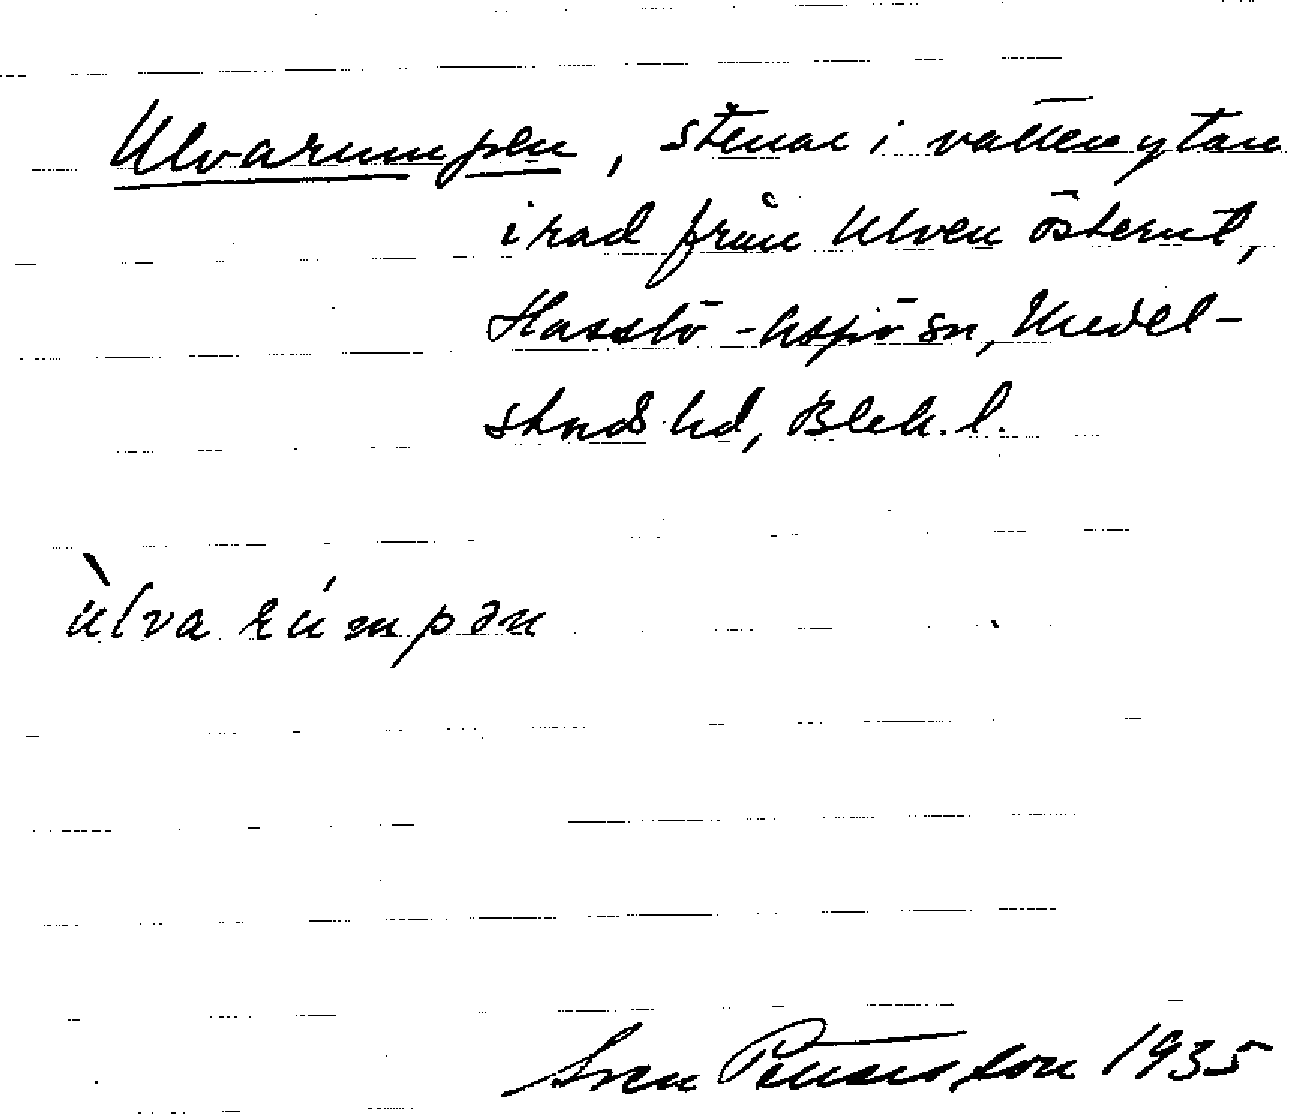 Ulvarumpen, stenar i vattenytan
i rad från Ulven österut,
Hasslö-Aspö sn, Medel-
stads hd, Blek. l.
ùlva rúmpən
Sven Pettersson 1935